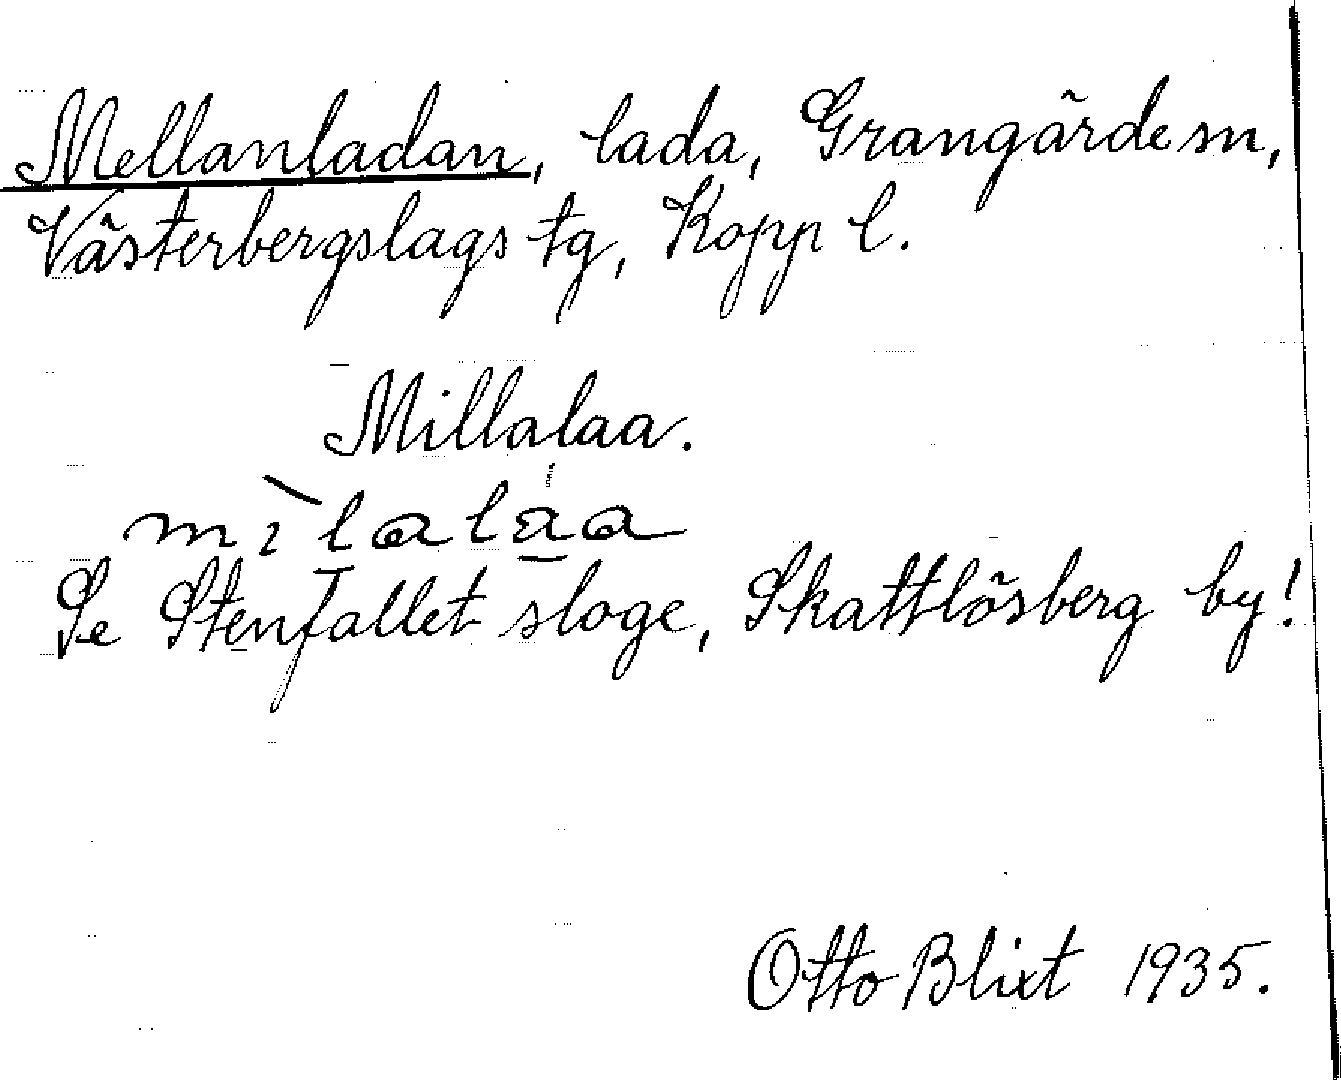 Mellanladan, lada, Grangärde sn,
Västerbergslags tg, Kopp l.
Millalaa.
mìlalāa
Se Stenfallet sloge, Skattlösberg by!
Otto Blixt 1935.